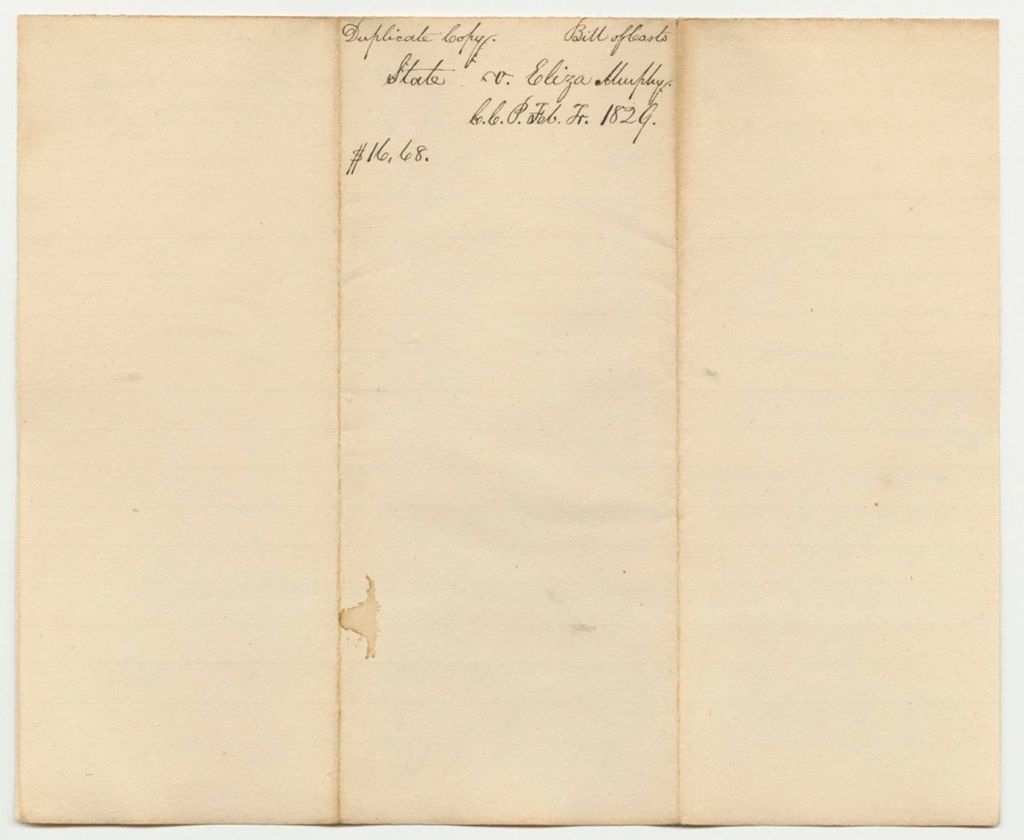 Duplicate Copy. Bill of Costs
State v. Eliza Murphy.
C.C.P. Feb. Tr. 1829.
$16,68.